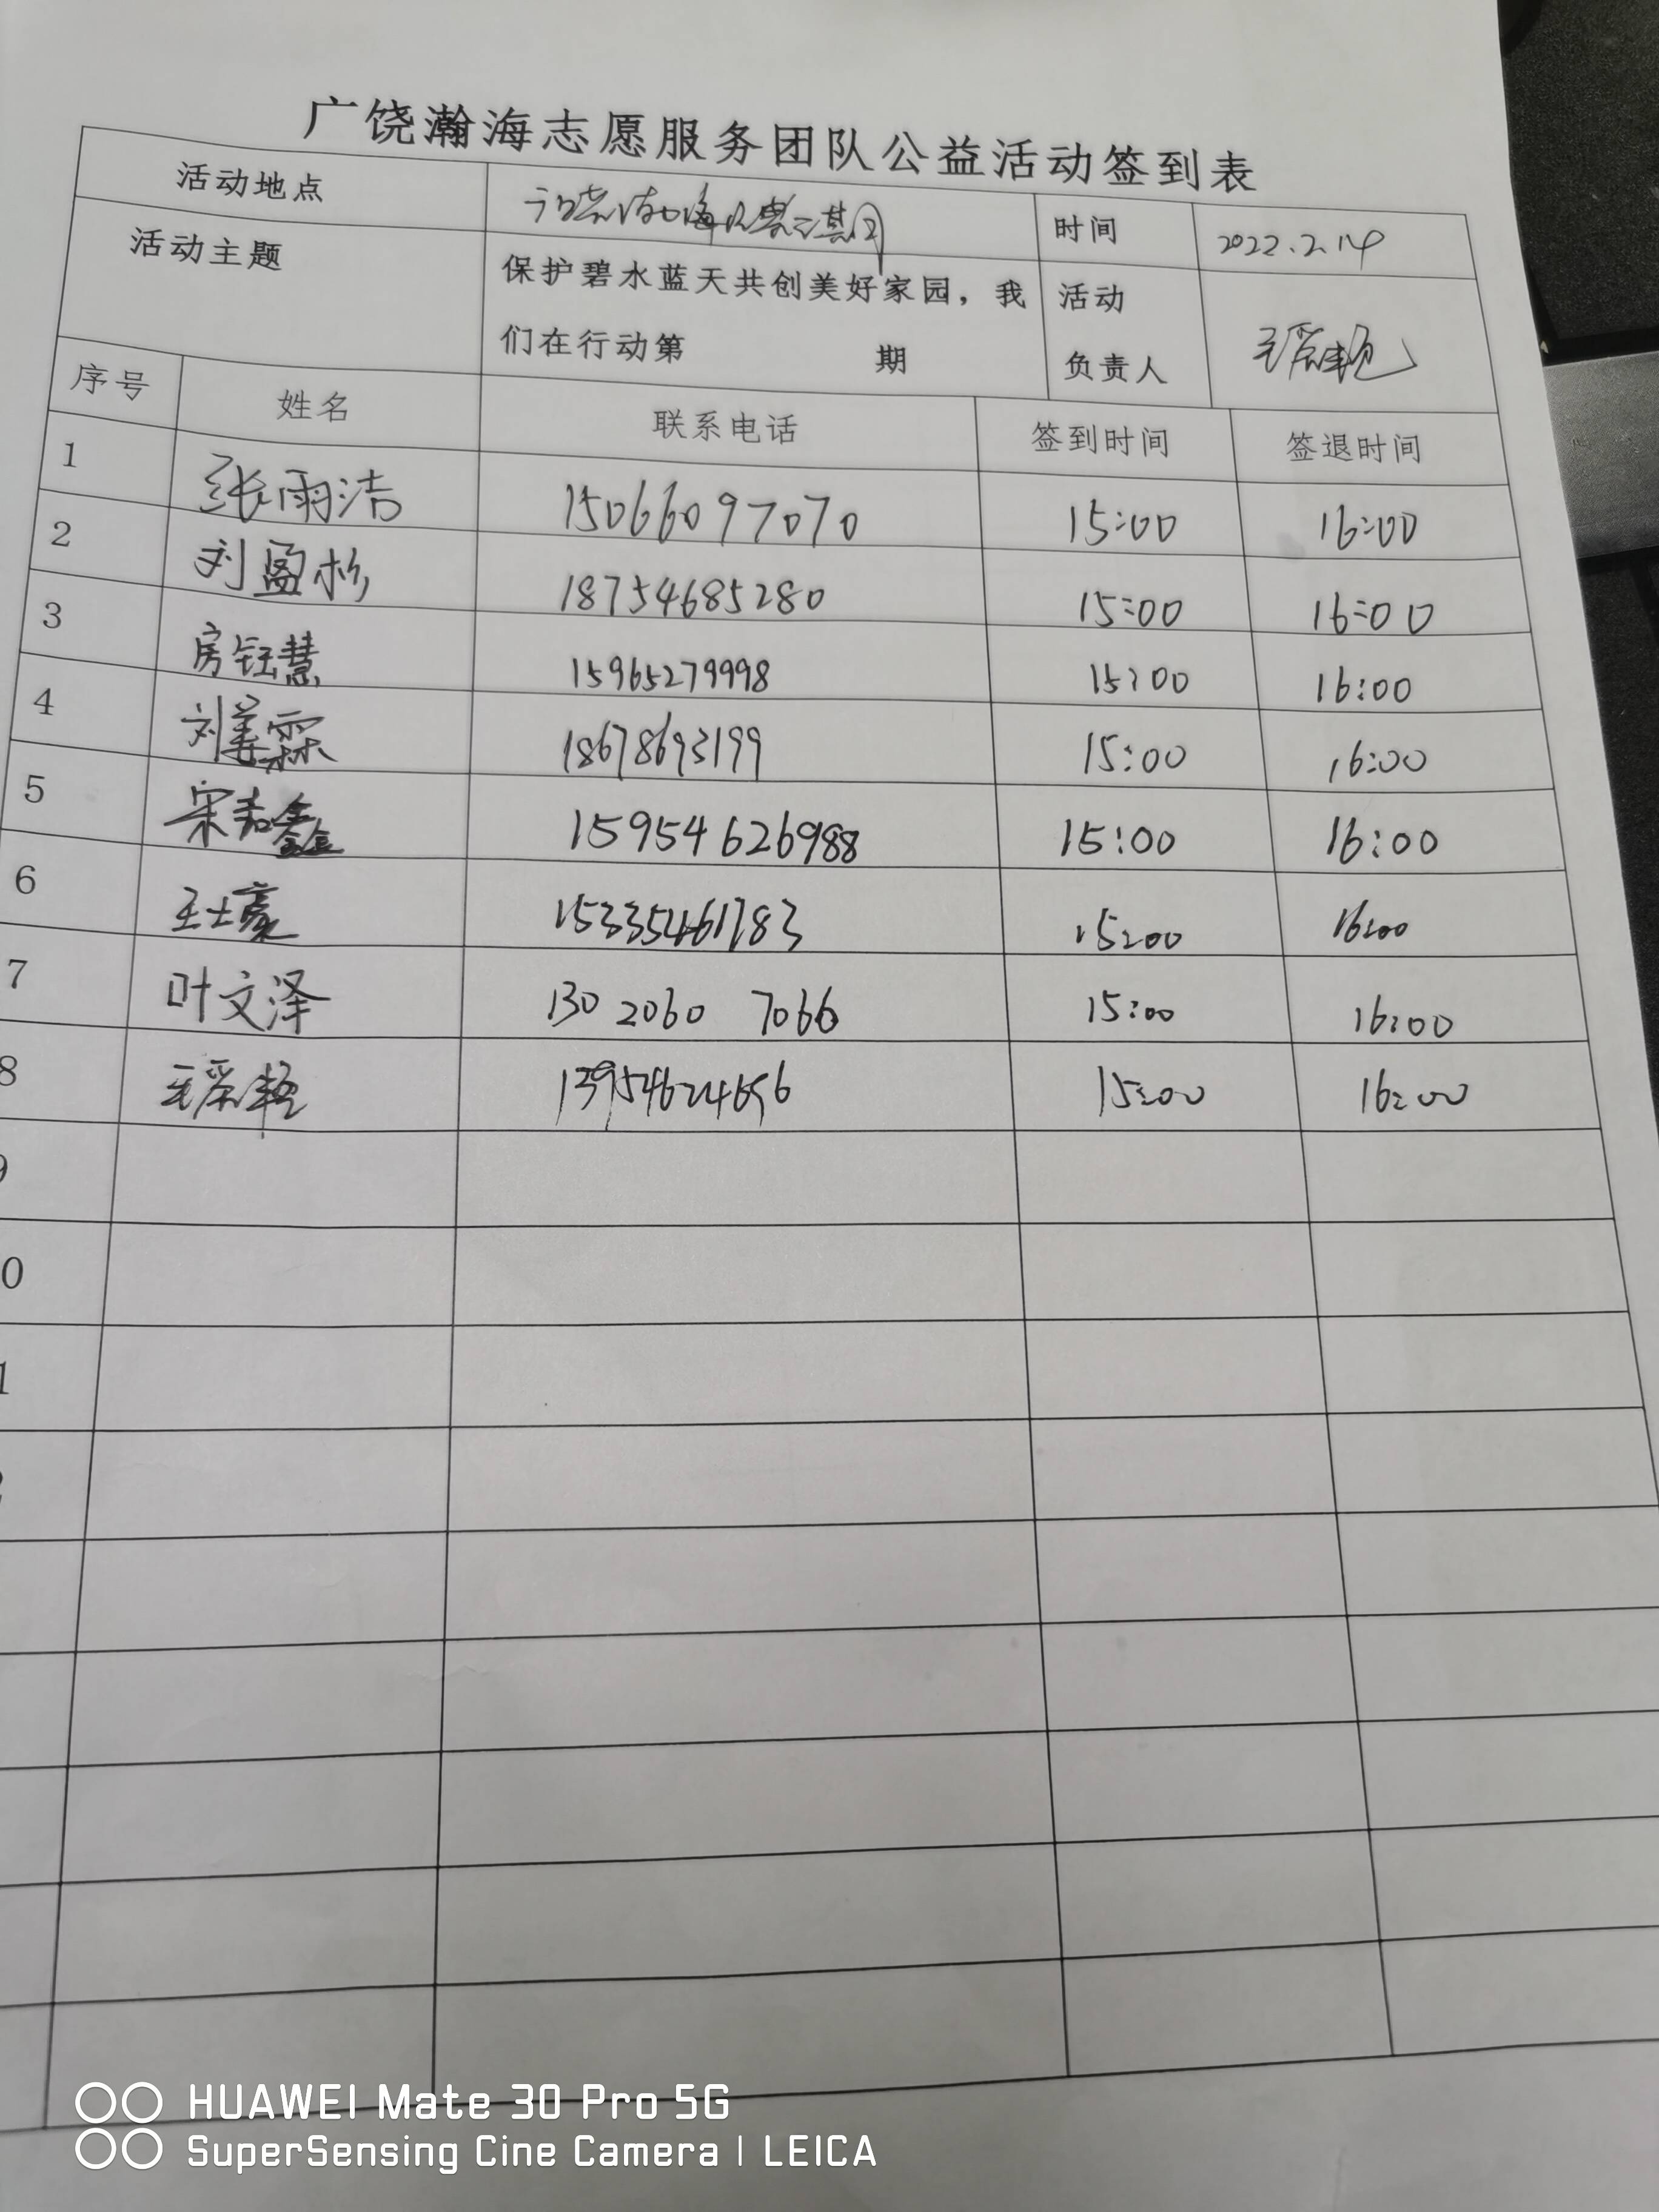 广饶瀚海志愿服务团队公益活动签到表
活动地点 时间 2022.2.14
活动主题 保护碧水蓝天共创美好家园，我 活动
们在行动第 期 负责人
序号 姓名 联系电话 签到时间 签退时间
1 张雨洁 15066097070 15:00 16:00
2 刘盈杉 18754685280 15:00 16:00
3 房钰慧 15965279998 15:00 16:00
4 刘姜霖 18678693199 15:00 16:00
5 宋知鑫 15954626988 15:00 16:00
6 王士豪 15335461783 15:00 16:00
7 叶文泽 130 2060 7066 15:00 16:00
8 13954624656 15:00 16:00
9
0
1
2
HUAWEI Mate 30 Pro 5G
SuperSensing Cine Camera | LEICA